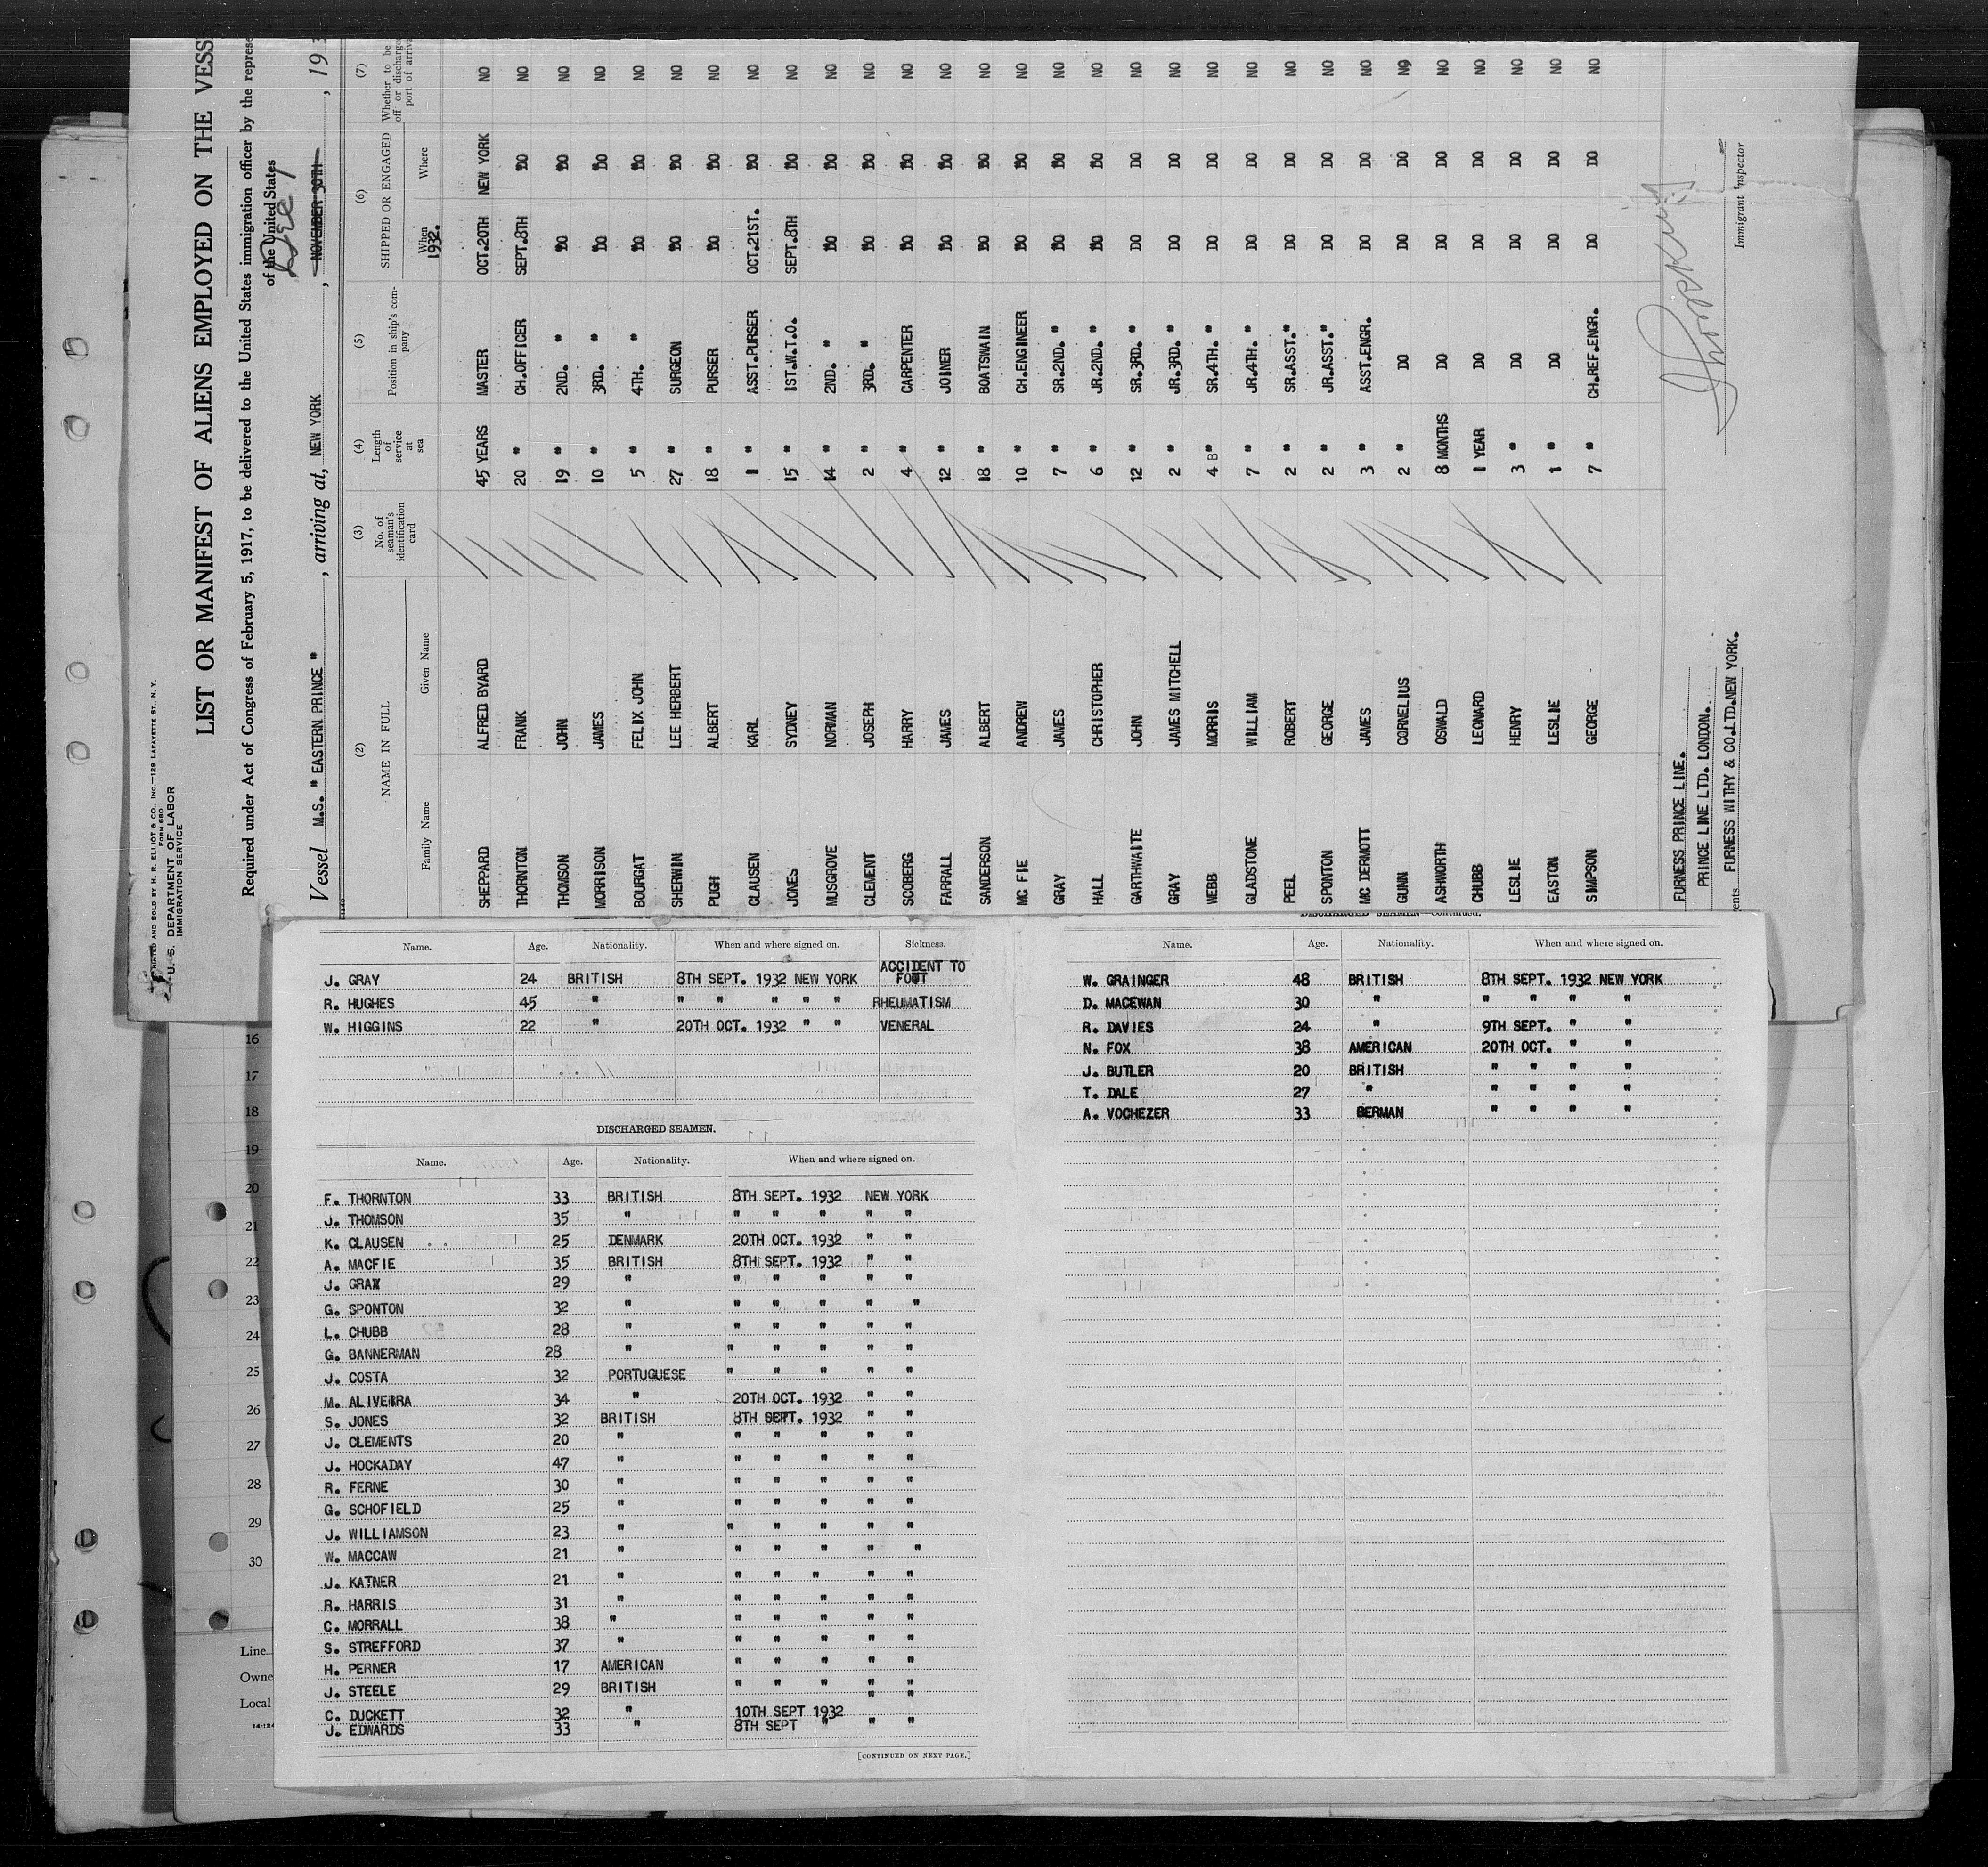 PRINTED AND SOLD BY H. R. ELLIOT & CO., INC.—129 LAFAYETTE ST., N.Y.
FORM 680
U. S. DEPARTMENT OF LABOR
IMMIGRATION SERVICE
LIST OR MANIFEST OF ALIENS EMPLOYED ON THE VESS
Required under Act of Congress of February 5, 1917, to be delivered to the United States immigration officer by the represe
of the United States
Dec 1
Vessel M.S. " EASTERN PRINCE " , arriving at, NEW YORK , NOVEMBER 30TH , 193
(2) (3) (4) (5) (6) (7)
NAME IN FULL No. of seaman's identification card Length of service at sea Position in ship's company SHIPPED OR ENGAGED Whether to be off or discharge port of arriva
Family Name Given Name When Where
1932.
SHEPPARD ALFRED BYARD 45 YEARS MASTER OCT.20TH NEW YORK NO
THORNTON FRANK 20 " CH.OFFICER SEPT.8TH DO NO
THOMSON JOHN 19 " 2ND. " DO DO NO
MORRISON JAMES 10 " 3RD. " DO DO NO
BOURGAT FELIX JOHN 5 " 4TH. " DO DO NO
SHERWIN LEE HERBERT 27 " SURGEON DO DO NO
PUGH ALBERT 18 " PURSER DO DO NO
CLAUSEN KARL 1 " ASST.PURSER OCT.21ST. DO NO
JONES SYDNEY 15 " 1ST.W.T.O. SEPT.8TH DO NO
MUSGROVE NORMAN 14 " 2ND. " DO DO NO
CLEMENT JOSEPH 2 " 3RD. " DO DO NO
SCOBERG HARRY 4 " CARPENTER DO DO NO
FARRALL JAMES 12 " JOINER DO DO NO
SANDERSON ALBERT 18 " BOATSWAIN DO DO NO
MC FIE ANDREW 10 " CH.ENGINEER DO DO NO
GRAY JAMES 7 " SR.2ND. " DO DO NO
HALL CHRISTOPHER 6 " JR.2ND. " DO DO NO
GARTHWAITE JOHN 12 " SR.3RD. " DO DO NO
GRAY JAMES MITCHELL 2 " JR.3RD. " DO DO NO
WEBB MORRIS 4 " SR.4TH. " DO DO NO
GLADSTONE WILLIAM 7 " JR.4TH. " DO DO NO
PEEL ROBERT 2 " SR.ASST. " DO DO NO
SPONTON GEORGE 2 " JR.ASST. " DO DO NO
MC DERMOTT JAMES 3 " ASST.ENGR. DO DO NO
GUNN CORNELIUS 2 " DO DO DO NO
ASHWORTH OSWALD 8 MONTHS DO DO DO NO
CHUBB LEONARD 1 YEAR DO DO DO NO
LESLIE HENRY 3 " DO DO DO NO
EASTON LESLIE 1 " DO DO DO NO
SIMPSON GEORGE 7 " CH.REF.ENGR. DO DO NO
FURNESS PRINCE LINE.
PRINCE LINE LTD. LONDON.
ents FURNESS WITHY & CO.LTD.NEW YORK.
Immigrant Inspector
Name. Age. Nationality. When and where signed on. Sickness.
J. GRAY 24 BRITISH 8TH SEPT. 1932 NEW YORK ACCIDENT TO FOOT
R. HUGHES 45 " " " " " " RHEUMATISM
W. HIGGINS 22 " 20TH OCT. 1932 " " VENERAL
DISCHARGED SEAMEN.
Name. Age. Nationality. When and where signed on.
F. THORNTON 33 BRITISH 8TH SEPT. 1932 NEW YORK
J. THOMSON 35 " " " " " "
K. CLAUSEN 25 DENMARK 20TH OCT. 1932 " "
A. MACFIE 35 BRITISH 8TH SEPT. 1932 " "
J. GRAY 29 " " " " " "
G. SPONTON 32 " " " " " "
L. CHUBB 28 " " " " " "
G. BANNERMAN 28 " " " " " "
J. COSTA 32 PORTUGUESE " " " " "
M. ALIVEIRA 34 " 20TH OCT. 1932 " "
S. JONES 32 BRITISH 8TH SEPT. 1932 " "
J. CLEMENTS 20 " " " " " "
J. HOCKADAY 47 " " " " " "
R. FERNE 30 " " " " " "
G. SCHOFIELD 25 " " " " " "
J. WILLIAMSON 23 " " " " " "
W. MACCAW 21 " " " " " "
J. KATNER 21 " " " " " "
R. HARRIS 31 " " " " " "
C. MORRALL 38 " " " " " "
S. STREFFORD 37 " " " " " "
H. PERNER 17 AMERICAN " " " " "
J. STEELE 29 BRITISH " " " " "
C. DUCKETT 32 " 10TH SEPT 1932 " "
J. EDWARDS 33 " 8TH SEPT " " "
[CONTINUED ON NEXT PAGE.]
DISCHARGED SEAMEN—continued.
Name. Age. Nationality. When and where signed on.
W. GRAINGER 48 BRITISH 8TH SEPT. 1932 NEW YORK
D. MACEWAN 30 " " " " "
R. DAVIES 24 " 9TH SEPT. " "
N. FOX 38 AMERICAN 20TH OCT. " "
J. BUTLER 20 BRITISH " " " "
T. DALE 27 " " " " "
A. VOCHEZER 33 GERMAN " " " "
16
17
18
19
20
21
22
23
24
25
26
27
28
29
30
Line
Owne
Local